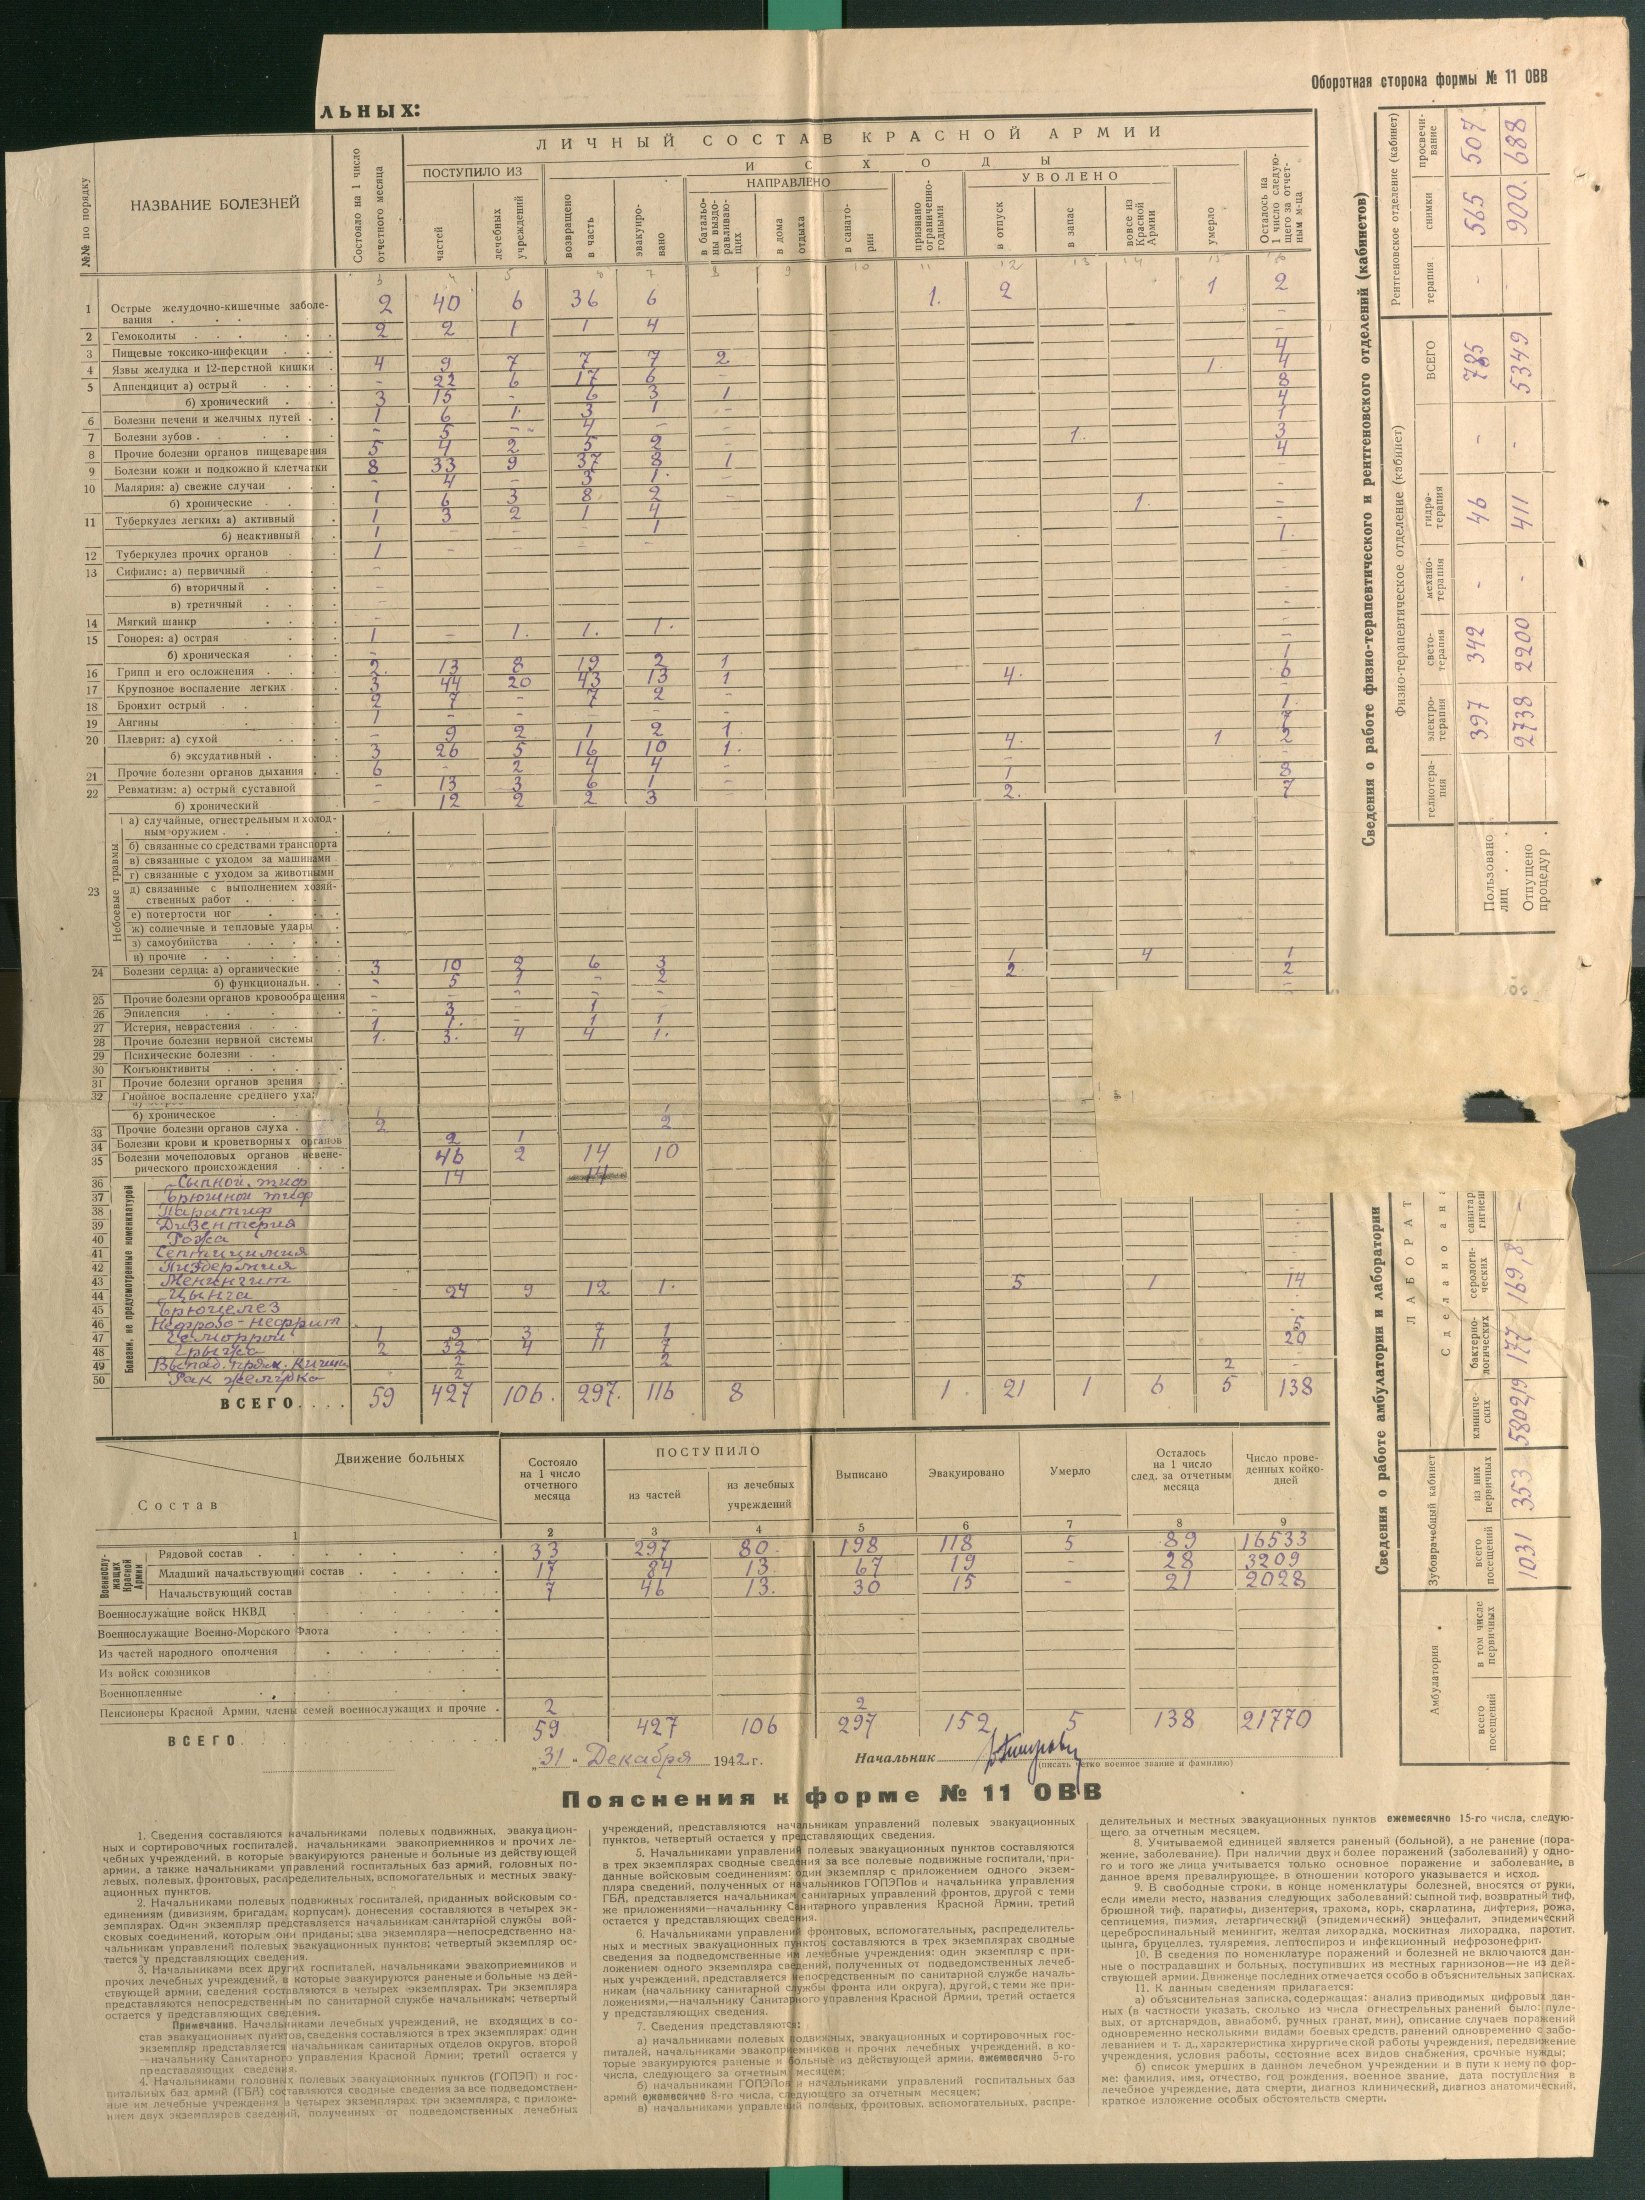 Оборотная сторона формы № 11 ОВВ
ЛЬНЫХ:
ЛИЧНЫЙ СОСТАВ КРАСНОЙ АРМИИ
№№ по порядку
НАЗВАНИЕ БОЛЕЗНЕЙ
Состояло на 1 число отчетного месяца
ПОСТУПИЛО ИЗ
частей
лечебных учреждений
ИСХОДЫ
возвращено в часть
эвакуировано
НАПРАВЛЕНО
в батальоны выздоравливающих
в дома отдыха
в санатории
признано ограниченно-годными
УВОЛЕНО
в отпуск
в запас
вовсе из Красной Армии
умерло
Осталось на 1 число следующего за отчетным м-ца
1 Острые желудочно-кишечные заболевания 2 40 6 36 6 1. 2 1 2
2 Гемоколиты 2 2 1 1 4 -
3 Пищевые токсико-инфекции
4 Язвы желудка и 12-перстной кишки 4 9 7 7 7 2 1. 4
5 Аппендицит а) острый - 22 6 17 6 - 8
б) хронический 3 15 - 6 3 1 4
6 Болезни печени и желчных путей 1 6 1. 3 1 - 1
7 Болезни зубов - 5 - 4 - - 1. 3
8 Прочие болезни органов пищеварения 5 4 2 5 2 - 4
9 Болезни кожи и подкожной клетчатки 8 33 9 37 8 1 -
10 Малярия: а) свежие случаи - 4 - 3 1. -
б) хронические 1 6 3 8 2 - 1 -
11 Туберкулез легких: а) активный 1 3 2 1 4 -
б) неактивный 1 - - - 1 1.
12 Туберкулез прочих органов 1 - - - -
13 Сифилис: а) первичный
б) вторичный
в) третичный
14 Мягкий шанкр
15 Гонорея: а) острая 1 - 1. 1. 1. -
б) хроническая - 1
16 Грипп и его осложнения 2 13 8 19 2 1 4. 6
17 Крупозное воспаление легких 3 44 20 43 13 1 -
18 Бронхит острый 2 7 - 7 2 - 1.
19 Ангины 1 - - - - - 7
20 Плеврит: а) сухой - 9 2 1 2 1. 4. 1 2
б) эксудативный 3 26 5 16 10 1. - -
21 Прочие болезни органов дыхания 6 - 2 4 4 - 1 8
22 Ревматизм: а) острый суставной - 13 3 6 1 - 2. 7
б) хронический - 12 2 2 3
23 Небоевые травмы
а) случайные, огнестрельным и холодным оружием
б) связанные со средствами транспорта
в) связанные с уходом за машинами
г) связанные с уходом за животными
д) связанные с выполнением хозяйственных работ
е) потертости ног
ж) солнечные и тепловые удары
з) самоубийства
и) прочие
24 Болезни сердца: а) органические 3 10 2 6 3 1 4 1
б) функциональн. - 5 1 - 2 2 2
25 Прочие болезни органов кровообращения
26 Эпилепсия - 3 - 1 -
27 Истерия, неврастения 1 1. - 1 1
28 Прочие болезни нервной системы 1. 3. 4 4 1.
29 Психические болезни
30 Конъюнктивиты
31 Прочие болезни органов зрения
32 Гнойное воспаление среднего уха:
б) хроническое
33 Прочие болезни органов слуха 2 2
34 Болезни крови и кроветворных органов 2 1
35 Болезни мочеполовых органов невенерического происхождения 46 2 14 10
Болезни, не предусмотренные номенклатурой
36 Сыпной тиф 14
37 Брюшной тиф
38 Паратиф
39 Дизентерия
40 Рожа
41 Септицимия
42
43 Менингит
44 Цынга 24 9 12 1. 5 1 14
45 Брюцелез
46 Нефрозо-нефрит
47 Геморрой 1 9 3 7 1 5
48 Грыжа 2 32 4 11 7 20
49 Выпад. прям. кишки 2 2 2 -
50 Рак желудка 2
ВСЕГО 59 427 106. 297. 116 8 1. 21 1 6 5 138
Движение больных
Состав
Состояло на 1 число отчетного месяца
ПОСТУПИЛО
из частей
из лечебных учреждений
Выписано
Эвакуировано
Умерло
Осталось на 1 число след. за отчетным месяца
Число проведенных койко-дней
1 2 3 4 5 6 7 8 9
Военнослужащих Красной Армии
Рядовой состав 33 297 80. 198 118 5 89 16533
Младший начальствующий состав 17 84 13. 67 19 - 28 3209
Начальствующий состав 7 46 13. 30 15 - 21 2028
Военнослужащие войск НКВД
Военнослужащие Военно-Морского Флота
Из частей народного ополчения
Из войск союзников
Военнопленные
Пенсионеры Красной Армии, члены семей военнослужащих и прочие 2 2
ВСЕГО 59 427 106 297 152 5 138 21770
„31" Декабря 1942 г.
Начальник
(писать четко военное звание и фамилию)
Пояснения к форме № 11 ОВВ
1. Сведения составляются начальниками полевых подвижных, эвакуацион-
ных и сортировочных госпиталей, начальниками эвакоприемников и прочих ле-
чебных учреждений, в которые эвакуируются раненые и больные из действующей
армии, а также начальниками управлений госпитальных баз армий, головных по-
левых, полевых, фронтовых, распределительных, вспомогательных и местных эваку-
ационных пунктов.
2. Начальниками полевых подвижных госпиталей, приданных войсковым со-
единениям (дивизиям, бригадам, корпусам), донесения составляются в четырех эк-
земплярах. Один экземпляр представляется начальникам санитарной службы вой-
сковых соединений, которым они приданы; два экземпляра—непосредственно на-
чальникам управлений полевых эвакуационных пунктов; четвертый экземпляр ос-
тается у представляющих сведения.
3. Начальниками всех других госпиталей, начальниками эвакоприемников и
прочих лечебных учреждений, в которые эвакуируются раненые и больные из дей-
ствующей армии, сведения составляются в четырех экземплярах. Три экземпляра
представляются непосредственным по санитарной службе начальникам; четвертый
остается у представляющих сведения.
Примечание. Начальниками лечебных учреждений, не входящих в со-
став эвакуационных пунктов, сведения составляются в трех экземплярах: один
экземпляр представляется начальникам санитарных отделов округов, второй
—начальнику Санитарного управления Красной Армии; третий остается у
представляющих сведения.
4. Начальниками головных полевых эвакуационных пунктов (ГОПЭП) и гос-
питальных баз армий (ГБА) составляются сводные сведения за все подведомствен-
ные им лечебные учреждения в четырех экземплярах: три экземпляра, с приложе-
нием двух экземпляров сведений, полученных от подведомственных лечебных
учреждений, представляются начальникам управлений полевых эвакуационных
пунктов, четвертый остается у представляющих сведения.
5. Начальниками управлений полевых эвакуационных пунктов составляются
в трех экземплярах сводные сведения за все полевые подвижные госпитали, при-
данные войсковым соединениям: один экземпляр с приложением одного экзем-
пляра сведений, полученных от начальников ГОПЭПов и начальника управления
ГБА, представляется начальникам санитарных управлений фронтов, другой с теми
же приложениями—начальнику Санитарного управления Красной Армии, третий
остается у представляющих сведения.
6. Начальниками управлений фронтовых, вспомогательных, распределитель-
ных и местных эвакуационных пунктов составляются в трех экземплярах сводные
сведения за подведомственные им лечебные учреждения: один экземпляр с при-
ложением одного экземпляра сведений, полученных от подведомственных лечеб-
ных учреждений, представляется непосредственным по санитарной службе началь-
никам (начальнику санитарной службы фронта или округа), другой, с теми же при-
ложениями,—начальнику Санитарного управления Красной Армии, третий остается
у представляющих сведения.
7. Сведения представляются:
а) начальниками полевых подвижных, эвакуационных и сортировочных гос-
питалей, начальниками эвакоприемников и прочих лечебных учреждений, в ко-
торые эвакуируются раненые и больные из действующей армии, ежемесячно 5-го
числа, следующего за отчетным месяцем;
б) начальниками ГОПЭПов и начальниками управлений госпитальных баз
армий ежемесячно 8-го числа, следующего за отчетным месяцем;
в) начальниками управлений полевых, фронтовых, вспомогательных, распре-
делительных и местных эвакуационных пунктов ежемесячно 15-го числа, следую-
щего за отчетным месяцем.
8. Учитываемой единицей является раненый (больной), а не ранение (пора-
жение, заболевание). При наличии двух и более поражений (заболеваний) у одно-
го и того же лица учитывается только основное поражение и заболевание, в
данное время превалирующее, в отношении которого указывается и исход.
9. В свободные строки, в конце номенклатуры болезней, вносятся от руки,
если имели место, названия следующих заболеваний: сыпной тиф, возвратный тиф,
брюшной тиф, паратифы, дизентерия, трахома, корь, скарлатина, дифтерия, рожа,
септицемия, пиэмия, летаргический (эпидемический) энцефалит, эпидемический
цереброспинальный менингит, желтая лихорадка, москитная лихорадка, паротит,
цынга, бруцеллез, туляремия, лептоспироз и инфекционный нефрозонефрит.
10. В сведения по номенклатуре поражений и болезней не включаются дан-
ные о пострадавших и больных, поступивших из местных гарнизонов—не из дей-
ствующей армии. Движение последних отмечается особо в объяснительных записках.
11. К данным сведениям прилагается:
а) объяснительная записка, содержащая: анализ приводимых цифровых дан-
ных (в частности указать, сколько из числа огнестрельных ранений было: пуле-
вых, от артснарядов, авиабомб, ручных гранат, мин), описание случаев поражений
одновременно несколькими видами боевых средств, ранений одновременно с забо-
леванием и т. д., характеристика хирургической работы учреждения, передвижение
учреждения, условия работы, состояние всех видов снабжения, срочные нужды;
б) список умерших в данном лечебном учреждении и в пути к нему по фор-
ме: фамилия, имя, отчество, год рождения, военное звание, дата поступления в
лечебное учреждение, дата смерти, диагноз клинический, диагноз анатомический,
краткое изложение особых обстоятельств смерти.
Сведения о работе физио-терапевтического и рентгеновского отделений (кабинетов)
Физио-терапевтическое отделение (кабинет)
Рентгеновское отделение (кабинет)
гелиотерапия
электро-терапия
свето-терапия
механо-терапия
гидро-терапия
ВСЕГО
терапия
снимки
просвечивание
Пользовано лиц 397 342 - 46 - 785 - 565 507
Отпущено процедур 2738 2200 - 411 - 5349 - 900. 688
Сведения о работе амбулатории и лаборатории
Амбулатория
всего посещений
в том числе первичных
Зубоврачебный кабинет
всего посещений
из них первичных
ЛАБОРАТ
Сделано ана
клинических
бактериологических
серологических
санитар гигиени
1031 353 5802 19 177 169,8 -